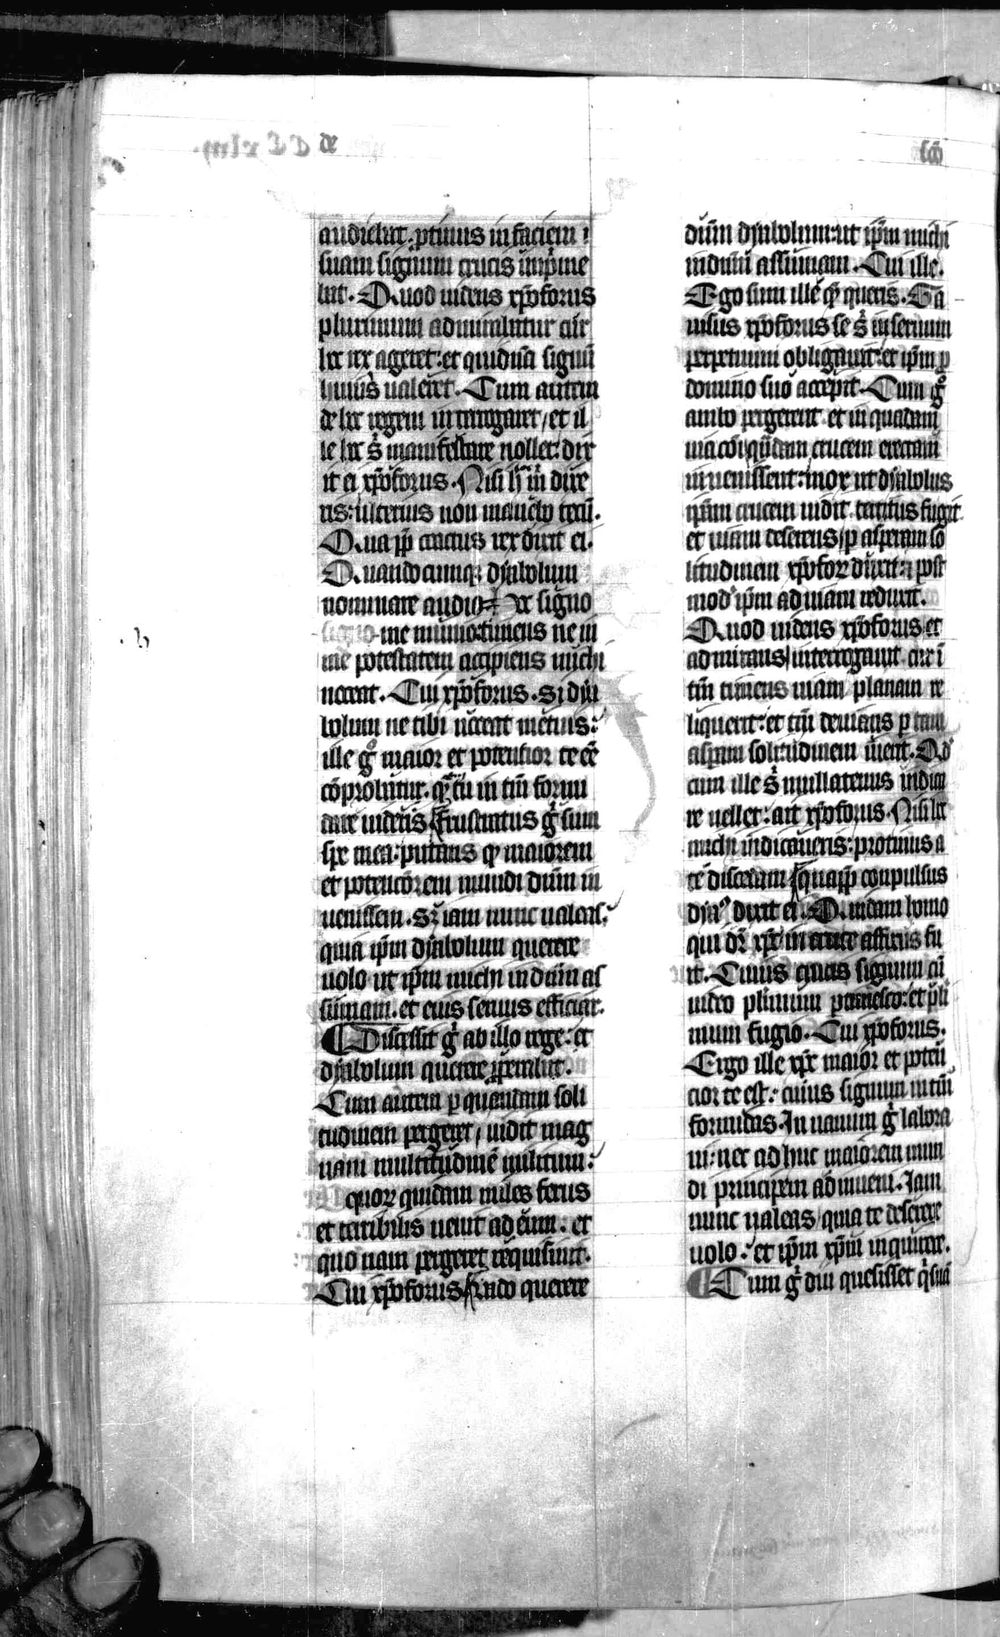 de
scō
audiebat. ꝓtinus in faciem
suam signum crucis imp̄me
bat. Quod uidens xp̄oforus
plurimum admirabatur cur
hec rex ageret: et quidnā signū
huiusˀ ualeret. Cum autem
de hec regem interrogaret / et il
le hec sˀ manifestare nollet: dix
it ei xp̄oforus. Nisi hˀ mˀ dixe
ris: ulterius non manebo tecū.
Quaꝓp̄ coactus rex dixit ei.
Quandocumqꝫ dyabolum
nominare audio hoc signo
me munio: timens ne in
me potestatem accipiens michi
noceat. Cui xp̄oforus. Si dya
bolum ne tibi noceat metuis:
ille gͦ maior et potentior te eē
cōprobatur. quē tu in tm̄ formi
dare uideris Frustratus gͦ sum
spe mea: putans ꝙ maiorem
et potenciorem mundi dn̄m in
uenissem. Sꝫ iam nunc ualeas:
quia ip̄m dyabolum querere
uolo ut ip̄m michi in dn̄m as
sumam. et eius seruus efficiar.
Discessit gͦ ab illo rege: et
dyabolum querere ꝓperabat.
Cum autem ꝑ quandam soli
tudinem pergeret / uidit mag
nam multitudinē militum:
quoꝝ quidam miles ferus
et terribilis uenit ad eum. et
quo nam pergeret requisiuit.
Cui xp̄oforus Uado querere
b
dn̄m dyabolum: ut ip̄m michi
in dn̄m assumam. Cui ille.
Ego sum ille quē queris. Ga
uisus xp̄oforus se sˀ in seruum
perpetuum obligauit: et ip̄m ꝓ
domino suo accepit. Cum gͦ
ambo pergerent et in quadam
uia cōi quādam crucem erectam
inuenissent: mox ut dyabolus
ip̄am crucem uidit territus fugit
et uiam deserens / ꝑ asperam so
litudinem xp̄oforꝝ duxit: et post
modˀ ip̄m ad uiam reduxit.
Quod uidens xp̄oforus et
admirans interrogauit cur ī
tm̄ timens uiam planam re
liquerit: et tm̄ deuians ꝑ tam
aspam solitudinem iuerit. Qd̄
cum ille sˀ nullatenus indica
re uellet: ait xp̄oforus. Nisi hec
michi indicaueris: protinus a
te discedam quaꝓp̄ conpulsus
dyaˀ dixit ei. Quidam homo
qui dr̄ xp̄c in cruce affixus fu
it. Cuius crucis signum cū
uideo plimum ꝑtimesco: et pli
mum fugio. Cui xp̄oforus.
Ergo ille xp̄c maior et poten
cior te est: cuius signum in tm̄
formidas. In uanum gͦ labora
ui: nec ad huc maiorem mun
di principem ad inueni. Iam
nunc ualeas / quia te deserere
uolo: et ip̄m xp̄m inquirere.
Cum gͦ diu quesisset qͥ sibi